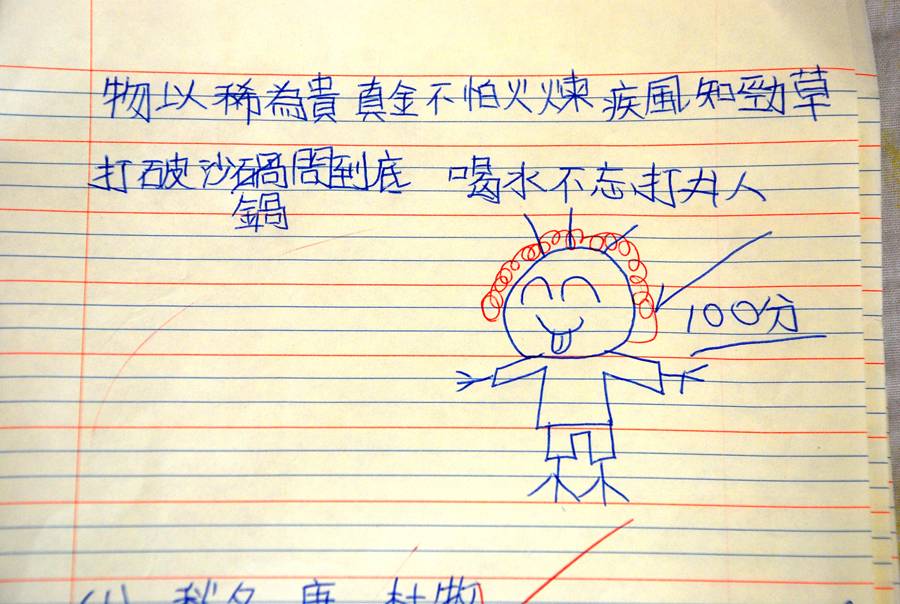 物以稀為貴 真金不怕火煉 疾風知勁草
打破沙鍋問到底 喝水不忘打井人
鍋
100分
(1) 秋夕 唐 杜牧